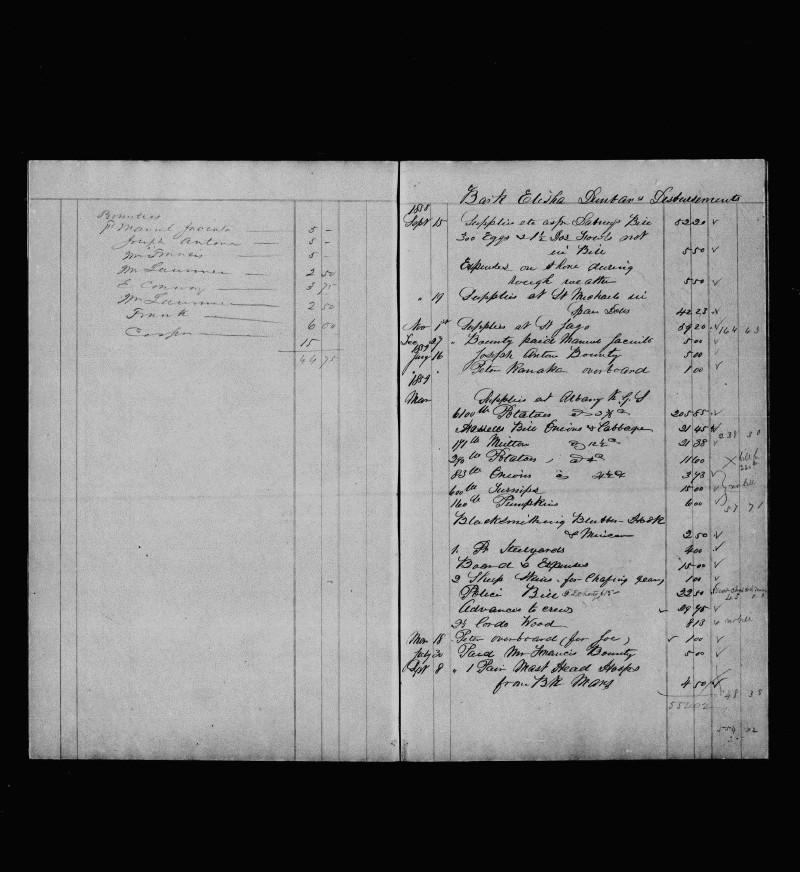 Bounties
Manuel Jacinto 5 -
Joseph Antone 5 -
Mr Francis 5 -
Mr Laurence 2 50
E Conway 3 75
Mr Laurence 2 50
Frank 6 00
Cooper 15
44 75
Bark Elisha Dunbar's Disbursements
1858
Sept 15 Supplies etc as pr Dabneys Bill 5220
300 Eggs & 1½ Doz Fowls not
in Bill 550
Expenses on Shore during
rough weather 550
" 19 Supplies at St Michaels in
Span Dols 4223
Nov 1st Supplies at St Jago 5920 164 63
Dec 27 " Bounty paid Manuel Jacinto 500
1859
Jany 16 Joseph Anton Bounty 500
" " Peter Kanaka overboard 100
1859
Mar Supplies at Albany K.G.S
6100 lb Potatoes 20585
Hassells Bill Onions & Cabbage 2145
171 lb Mutton 2138 238 30
290 lb Potatoes, 1160
83 lb Onions 393
600 lb Turnips 1500 no bill
160 lb Pumpkins 600
Blacksmithing Blubber Hook
& Mincer 250
1 Pr Steelyards 400
Board & Expenses 1500
2 Sheep Skins for Chafing gear 100
Police Bill 2250
Advances to crew
Cords Wood 813 no bill
Mar 18 Peter overboard (for Joe) 100
July 30 Paid Mr Francis Bounty 500
Sept 8 " 1 Pair Mast Head Hoops
from Bk Mars 450 48 38
55202